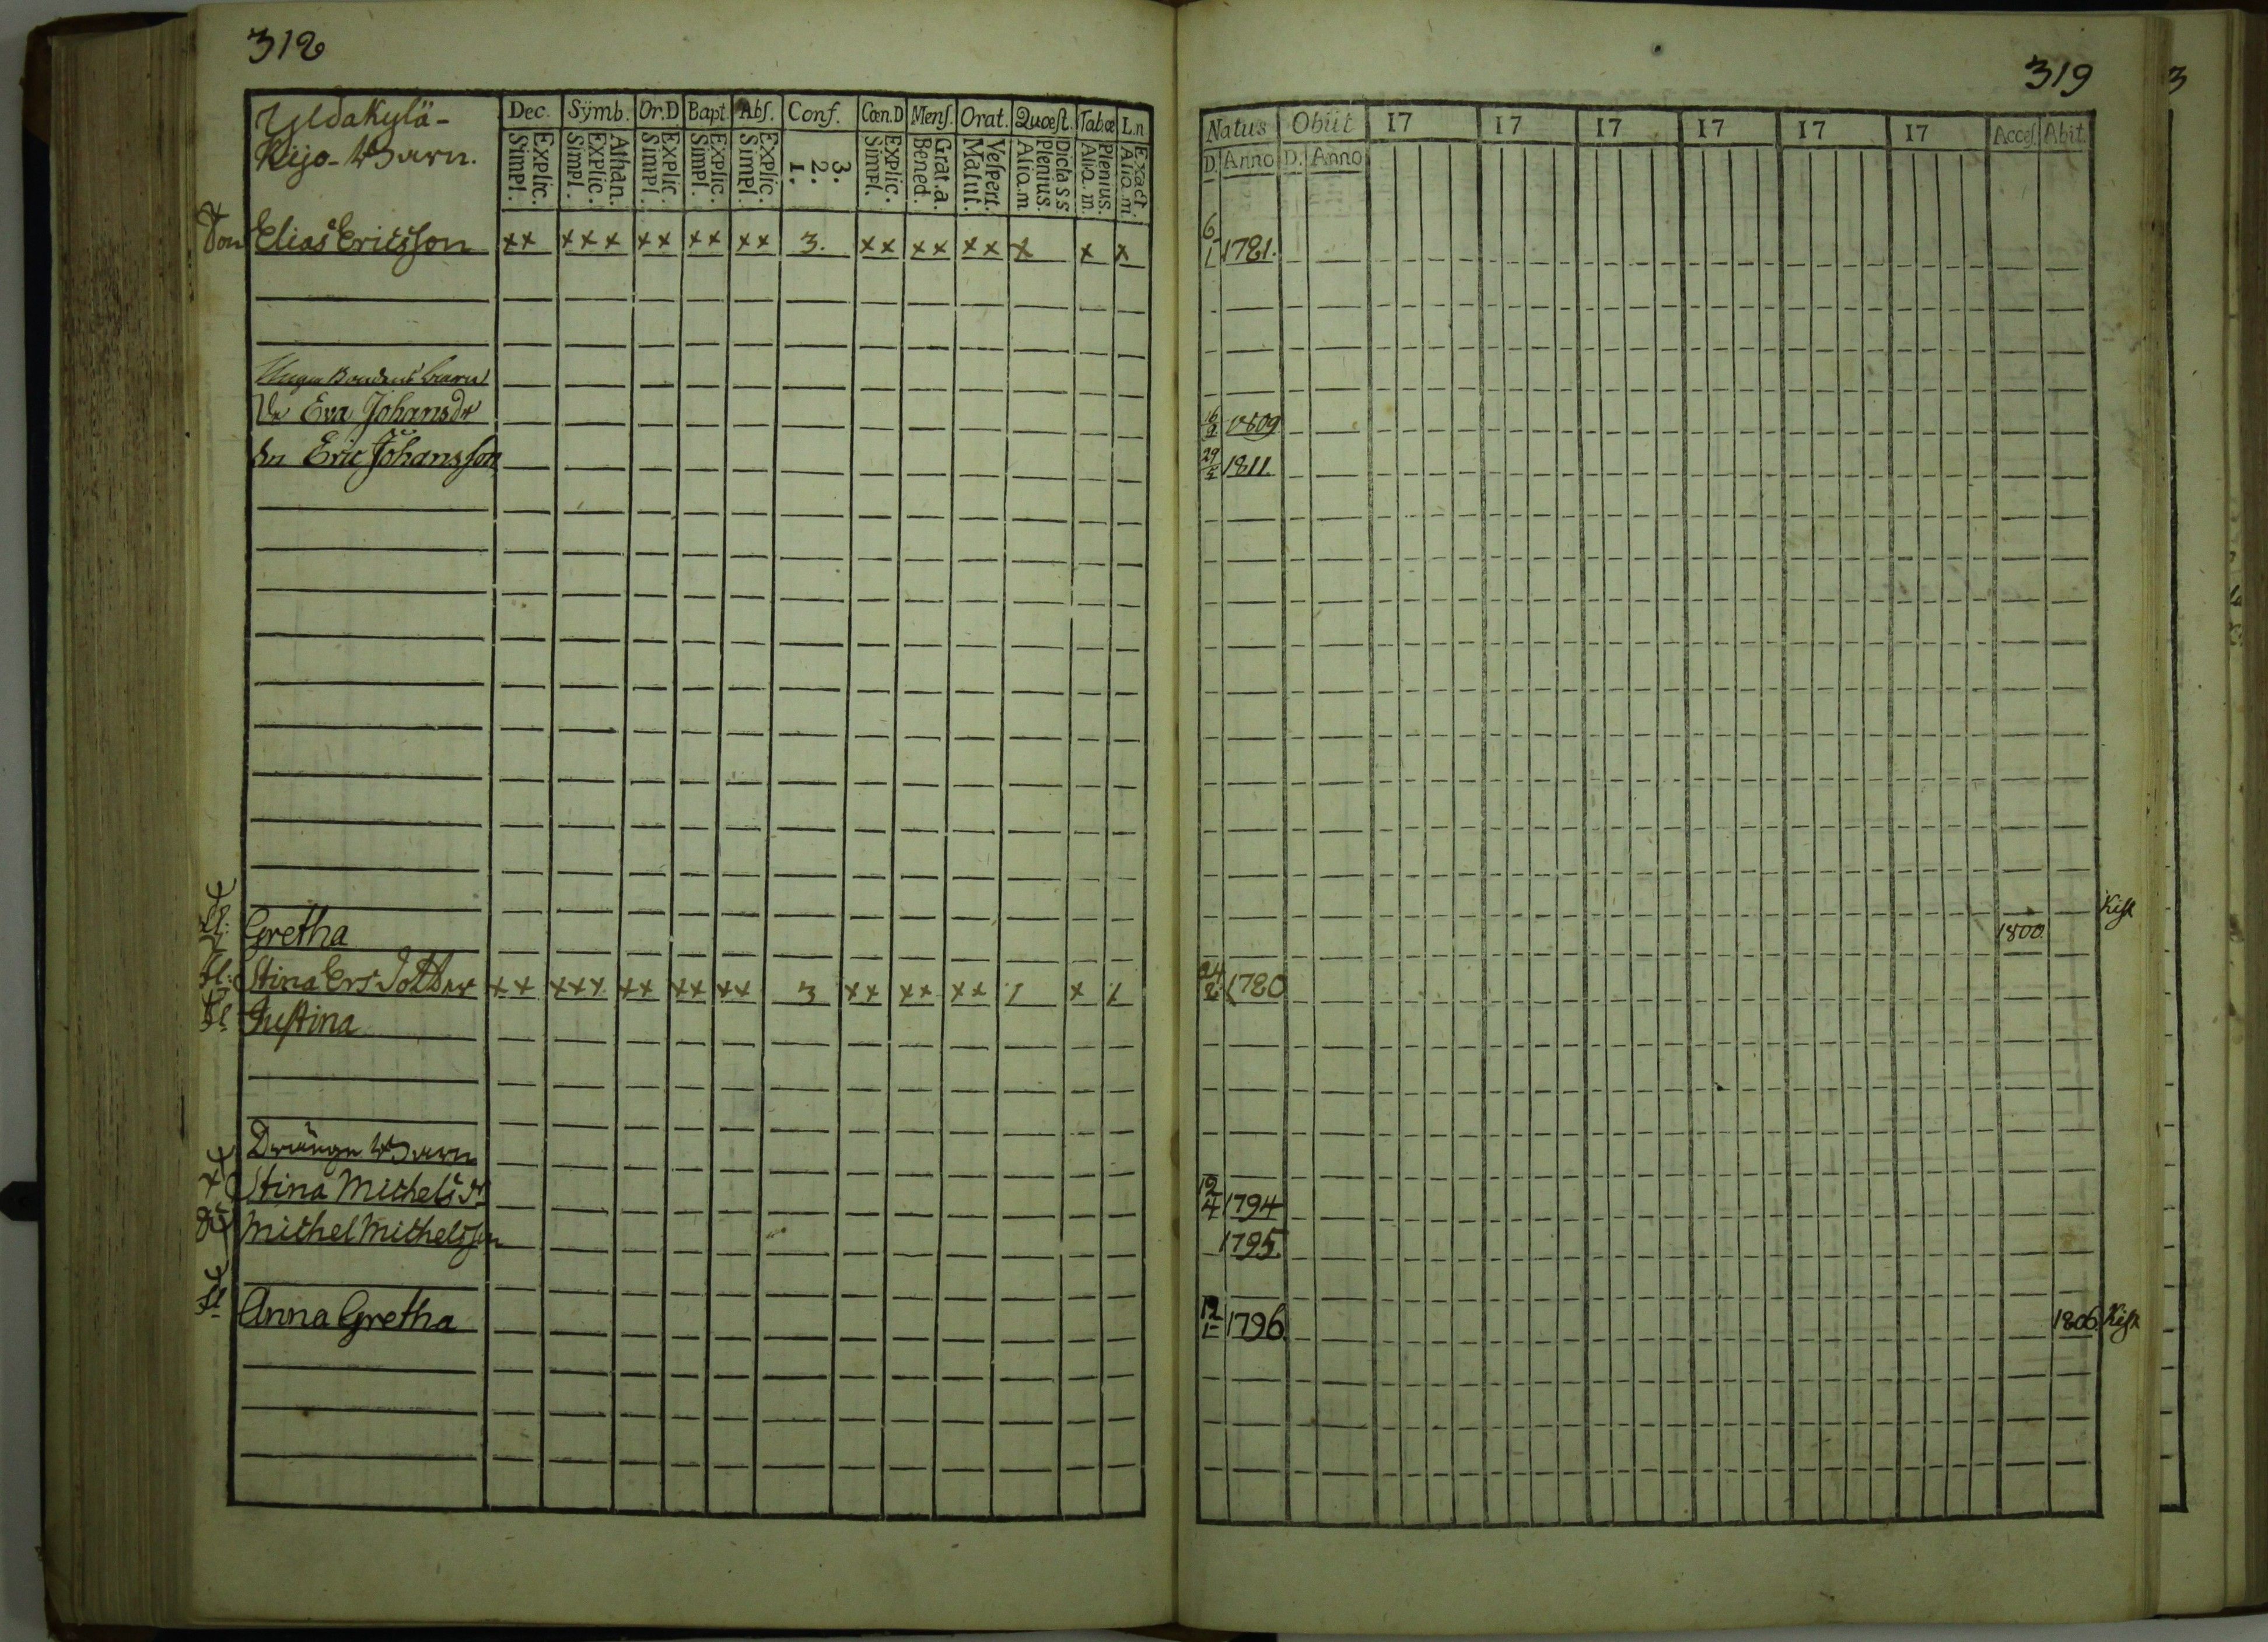 312
Yldakylä-
Kijo- Barn.
Dec. Sÿmb. Or.D Bapt. Abſ. Conf. Cœn.D Menſ. Orat. Quœſt. Tab.œ L.n
Explic. Simpl. Athan. Explic. Simpl. Explic. Simpl. Explic. Simpl. Explic. Simpl. 3. 2. 1. Explic. Simpl. Grat.a. Bened. Veſpert. Matut. Dicta s.s. Plenius. Aliq.m Plenius. Aliq.m. Exact. Aliq.m.
Son Elias Ericsson xx xxx xx xx xx 3. xx xx xx x x x
Unga Bondens barn
Dr Eva Johansdr
Sn Eric Johansson
Gretha
Stina Ers Dotter xx xxx xx xx xx 3 xx xx xx / x /
Justina
Drängn Barn
Stina Michelsdr
Michel Michelsson
Anna Gretha
319
Natus Obiit 17 17 17 17 17 17 Acceſ. Abit.
D. Anno D. Anno
6/1 1781.
16/9 1809
29/5 1811.
1800 Kisk
24/8 1780
12/4 1794
1795
12/1 1796 1806 Kisk
3